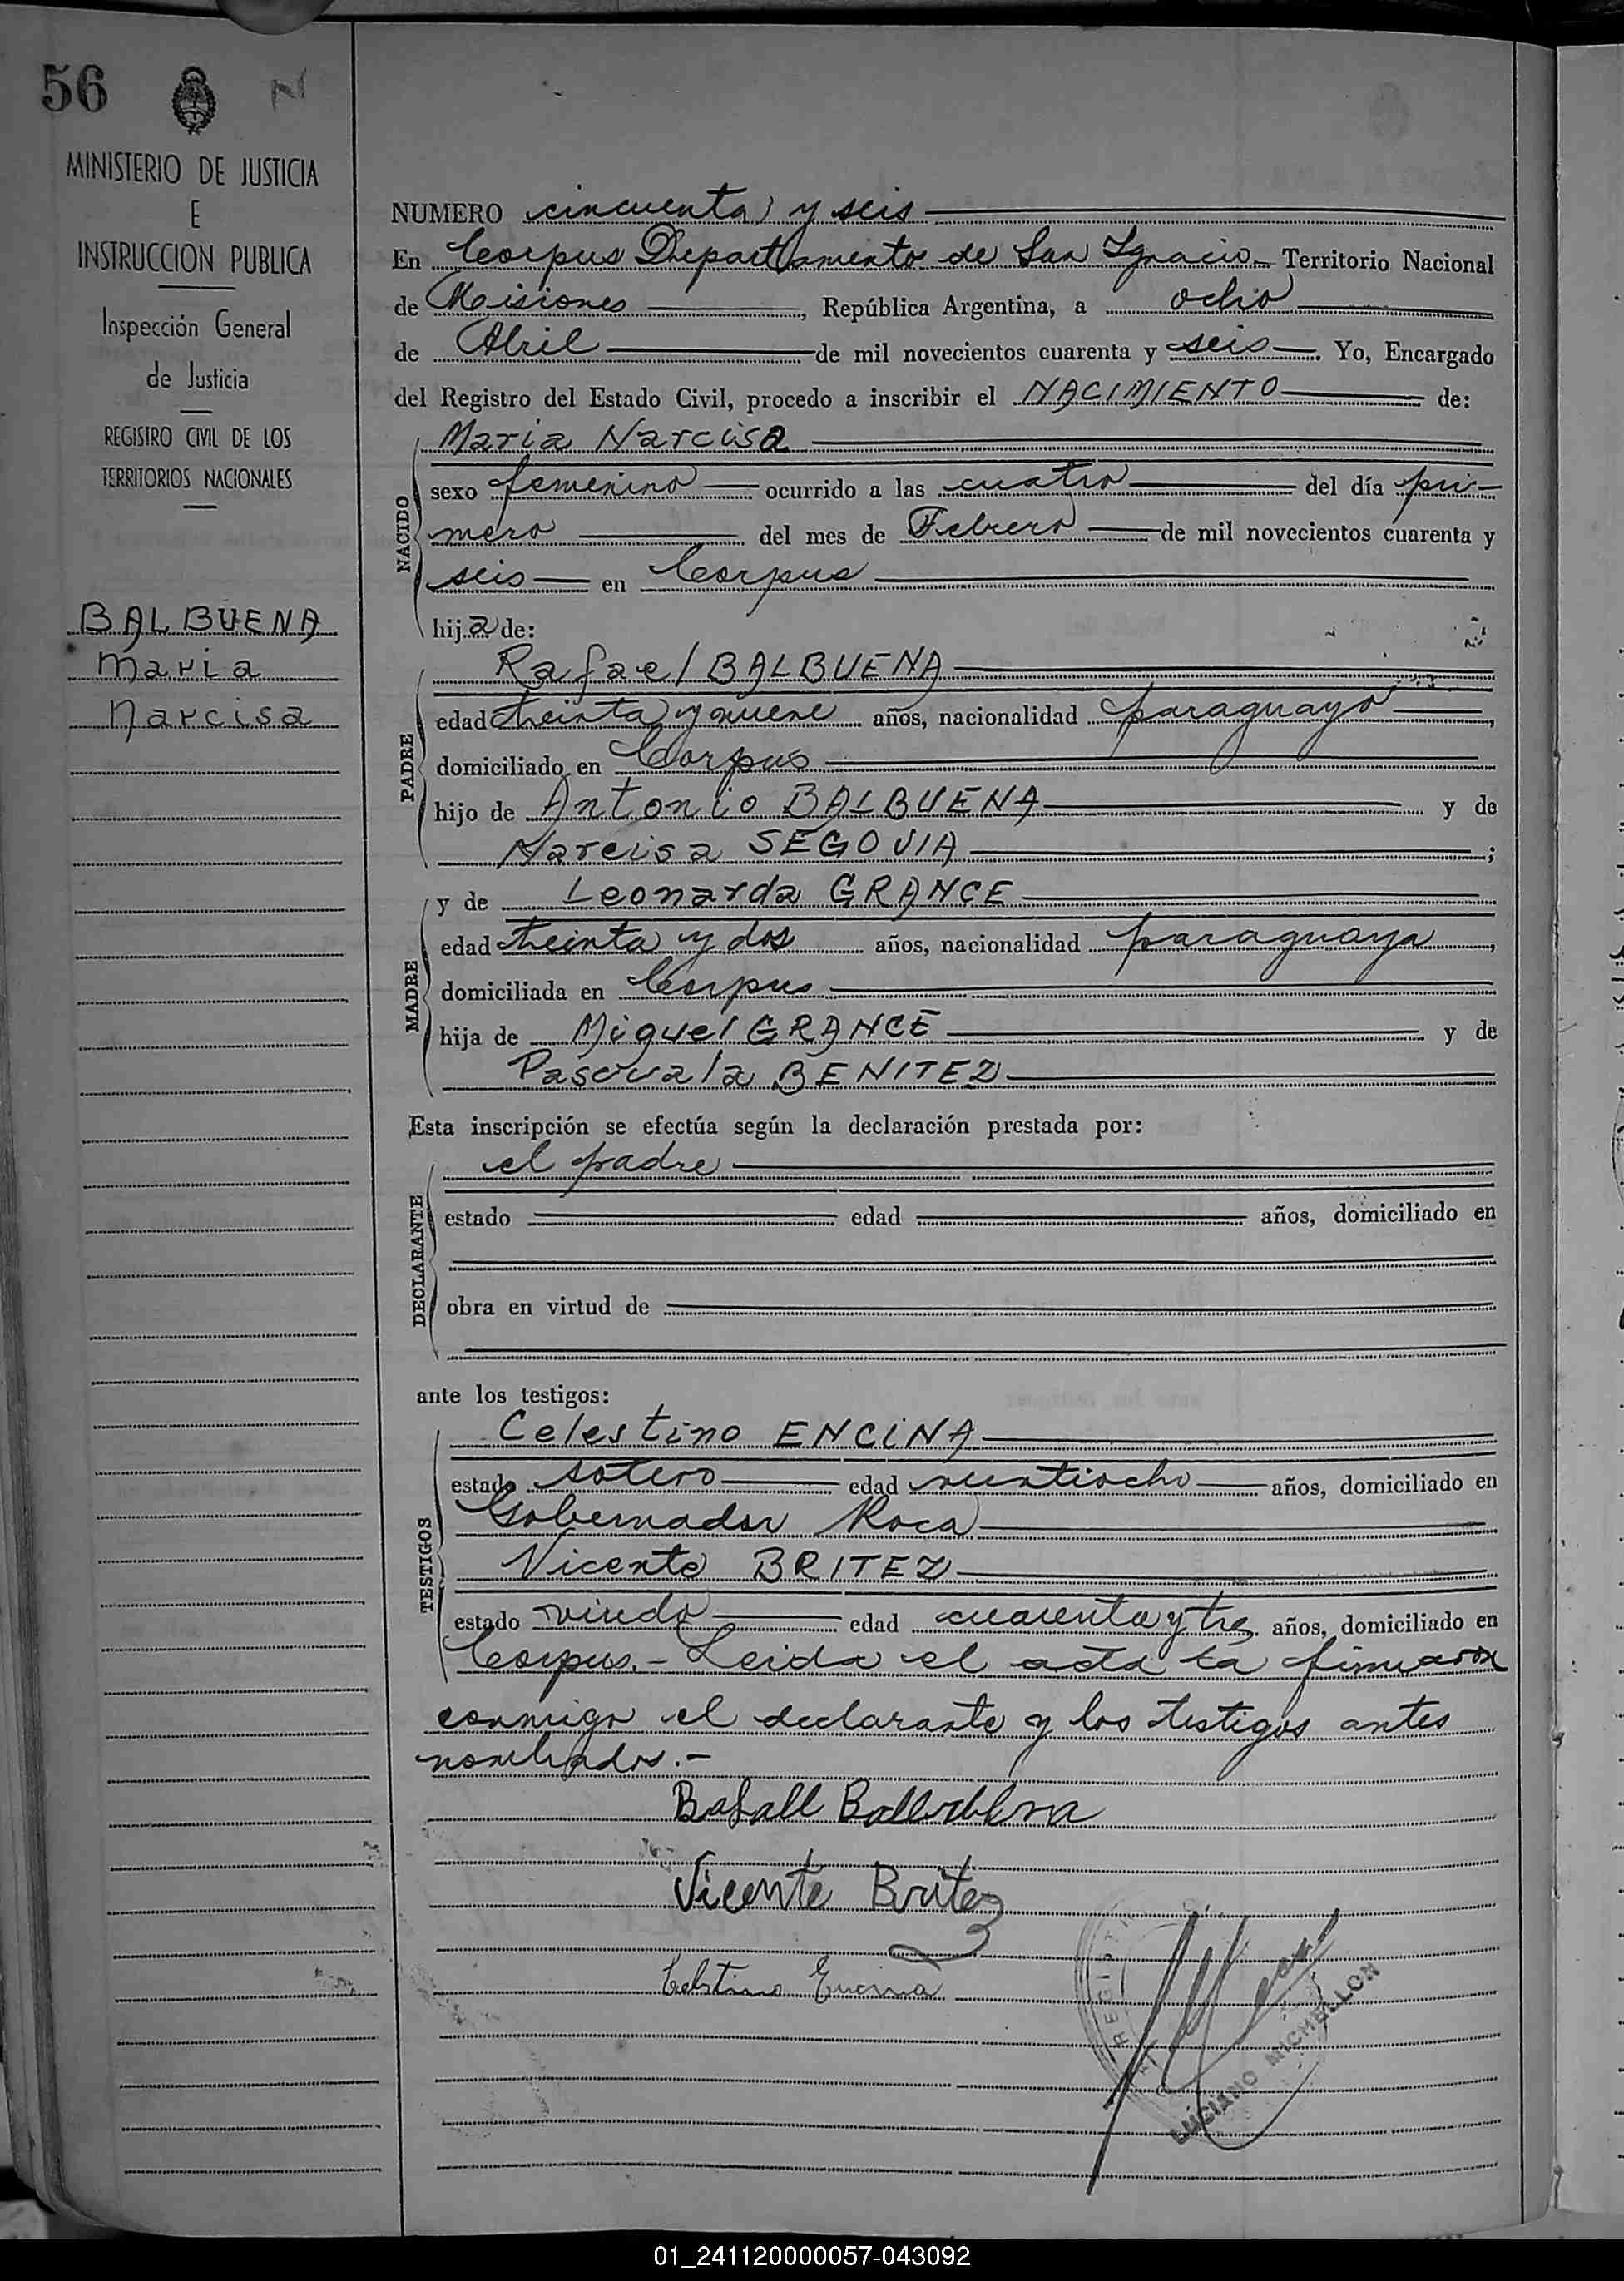 56
MINISTERIO DE JUSTICIA
E
INSTRUCCION PUBLICA
Inspección General
de Justicia
REGISTRO CIVIL DE LOS
TERRITORIOS NACIONALES
BALBUENA
Maria
Narcisa
NUMERO cincuenta y seis
En Corpus Departamento de San Ignacio Territorio Nacional
de Misiones, República Argentina, a ocho
de Abril de mil novecientos cuarenta y seis. Yo, Encargado
del Registro del Estado Civil, procedo a inscribir el NACIMIENTO de:
NACIDO
Maria Narcisa
sexo femenino ocurrido a las cuatro del día pri-
mero del mes de Febrero de mil novecientos cuarenta y
seis en Corpus
hija de:
PADRE
Rafael BALBUENA
edad treinta y nueve años, nacionalidad paraguayo,
domiciliado en Corpus
hijo de Antonio BALBUENA y de
Narcisa SEGOVIA;
MADRE
y de Leonarda GRANCE
edad treinta y dos años, nacionalidad paraguaya,
domiciliada en Corpus
hija de Miguel GRANCE y de
Pascuala BENITEZ
Esta inscripción se efectúa según la declaración prestada por:
DECLARANTE
el padre
estado edad años, domiciliado en
obra en virtud de
ante los testigos:
TESTIGOS
Celestino ENCINA
estado soltero edad veintiocho años, domiciliado en
Gobernador Roca
Vicente BRITEZ
estado viudo edad cuarenta y tres años, domiciliado en
Corpus.- Leida el acta la firmaron
conmigo el declarante y los testigos antes
nombrados.-
Vicente Britez
Celestino Encina
REGISTRO
LUCIANO MICHELLON
01_241120000057-043092